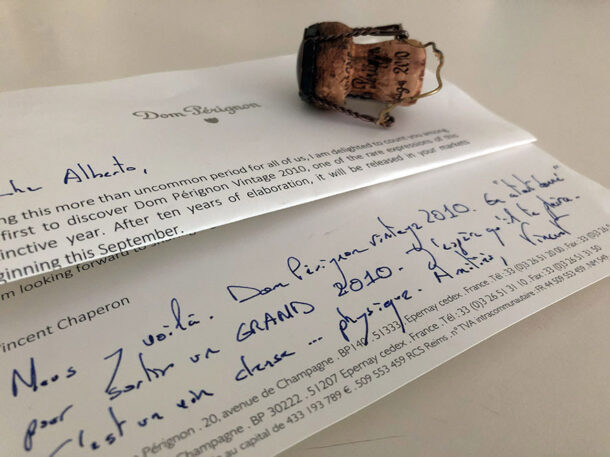 Dom Pérignon
Alberto,
ing this more than uncommon period for all of us, I am delighted to count you among
first to discover Dom Pérignon Vintage 2010, one of the rare expressions of this
inctive year. After ten years of elaboration, it will be released in your markets
ginning this September.
m looking forward to
incent Chaperon
Nous y voilà. Dom Pérignon Vintage 2010.
pour sortir un GRAND 2010. J'espère qu'il te plaira.
C'est un vin dense... physique. Amitiés, Vincent
Pérignon . 20, avenue de Champagne . BP 140 . 51333 Epernay cedex . France . Tél : 33 (0)3 26 51 20 00 . Fax : 33 (0)3
Champagne . BP 30222 . 51207 Epernay cedex . France . Tél. : 33 (0)3 26 51 31 10 . Fax : 03 26 51 31 50
au capital de 433 193 789 € . 509 553 459 RCS Reims . n° TVA intracommunautaire : FR 44 509 553 459
2010